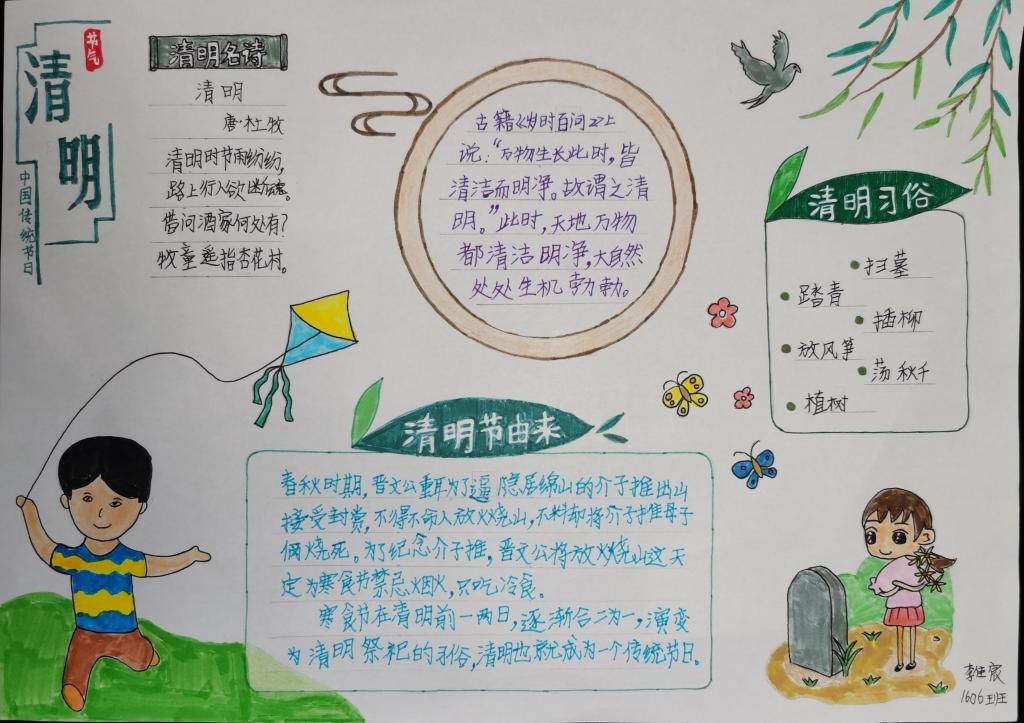 节气
清明
中国传统节日
清明名诗
清明
唐·杜牧
清明时节雨纷纷,
路上行人欲断魂。
借问酒家何处有?
牧童遥指杏花村。
古籍《岁时百问》上
说:“万物生长此时,皆
清洁而明净。故谓之清
明。”此时,天地万物
都清洁明净,大自然
处处生机勃勃。
清明习俗
扫墓
踏青
插柳
放风筝
荡秋千
植树
清明节由来
春秋时期,晋文公重耳为了逼隐居绵山的介子推出山
接受封赏,不得不命人放火烧山,不料却将介子推母子
俩烧死。为了纪念介子推,晋文公将放火烧山这天
定为寒食节禁忌烟火,只吃冷食。
寒食节在清明前一两日,逐渐合二为一,演变
为清明祭祀的习俗,清明也就成为一个传统节日。
1606班